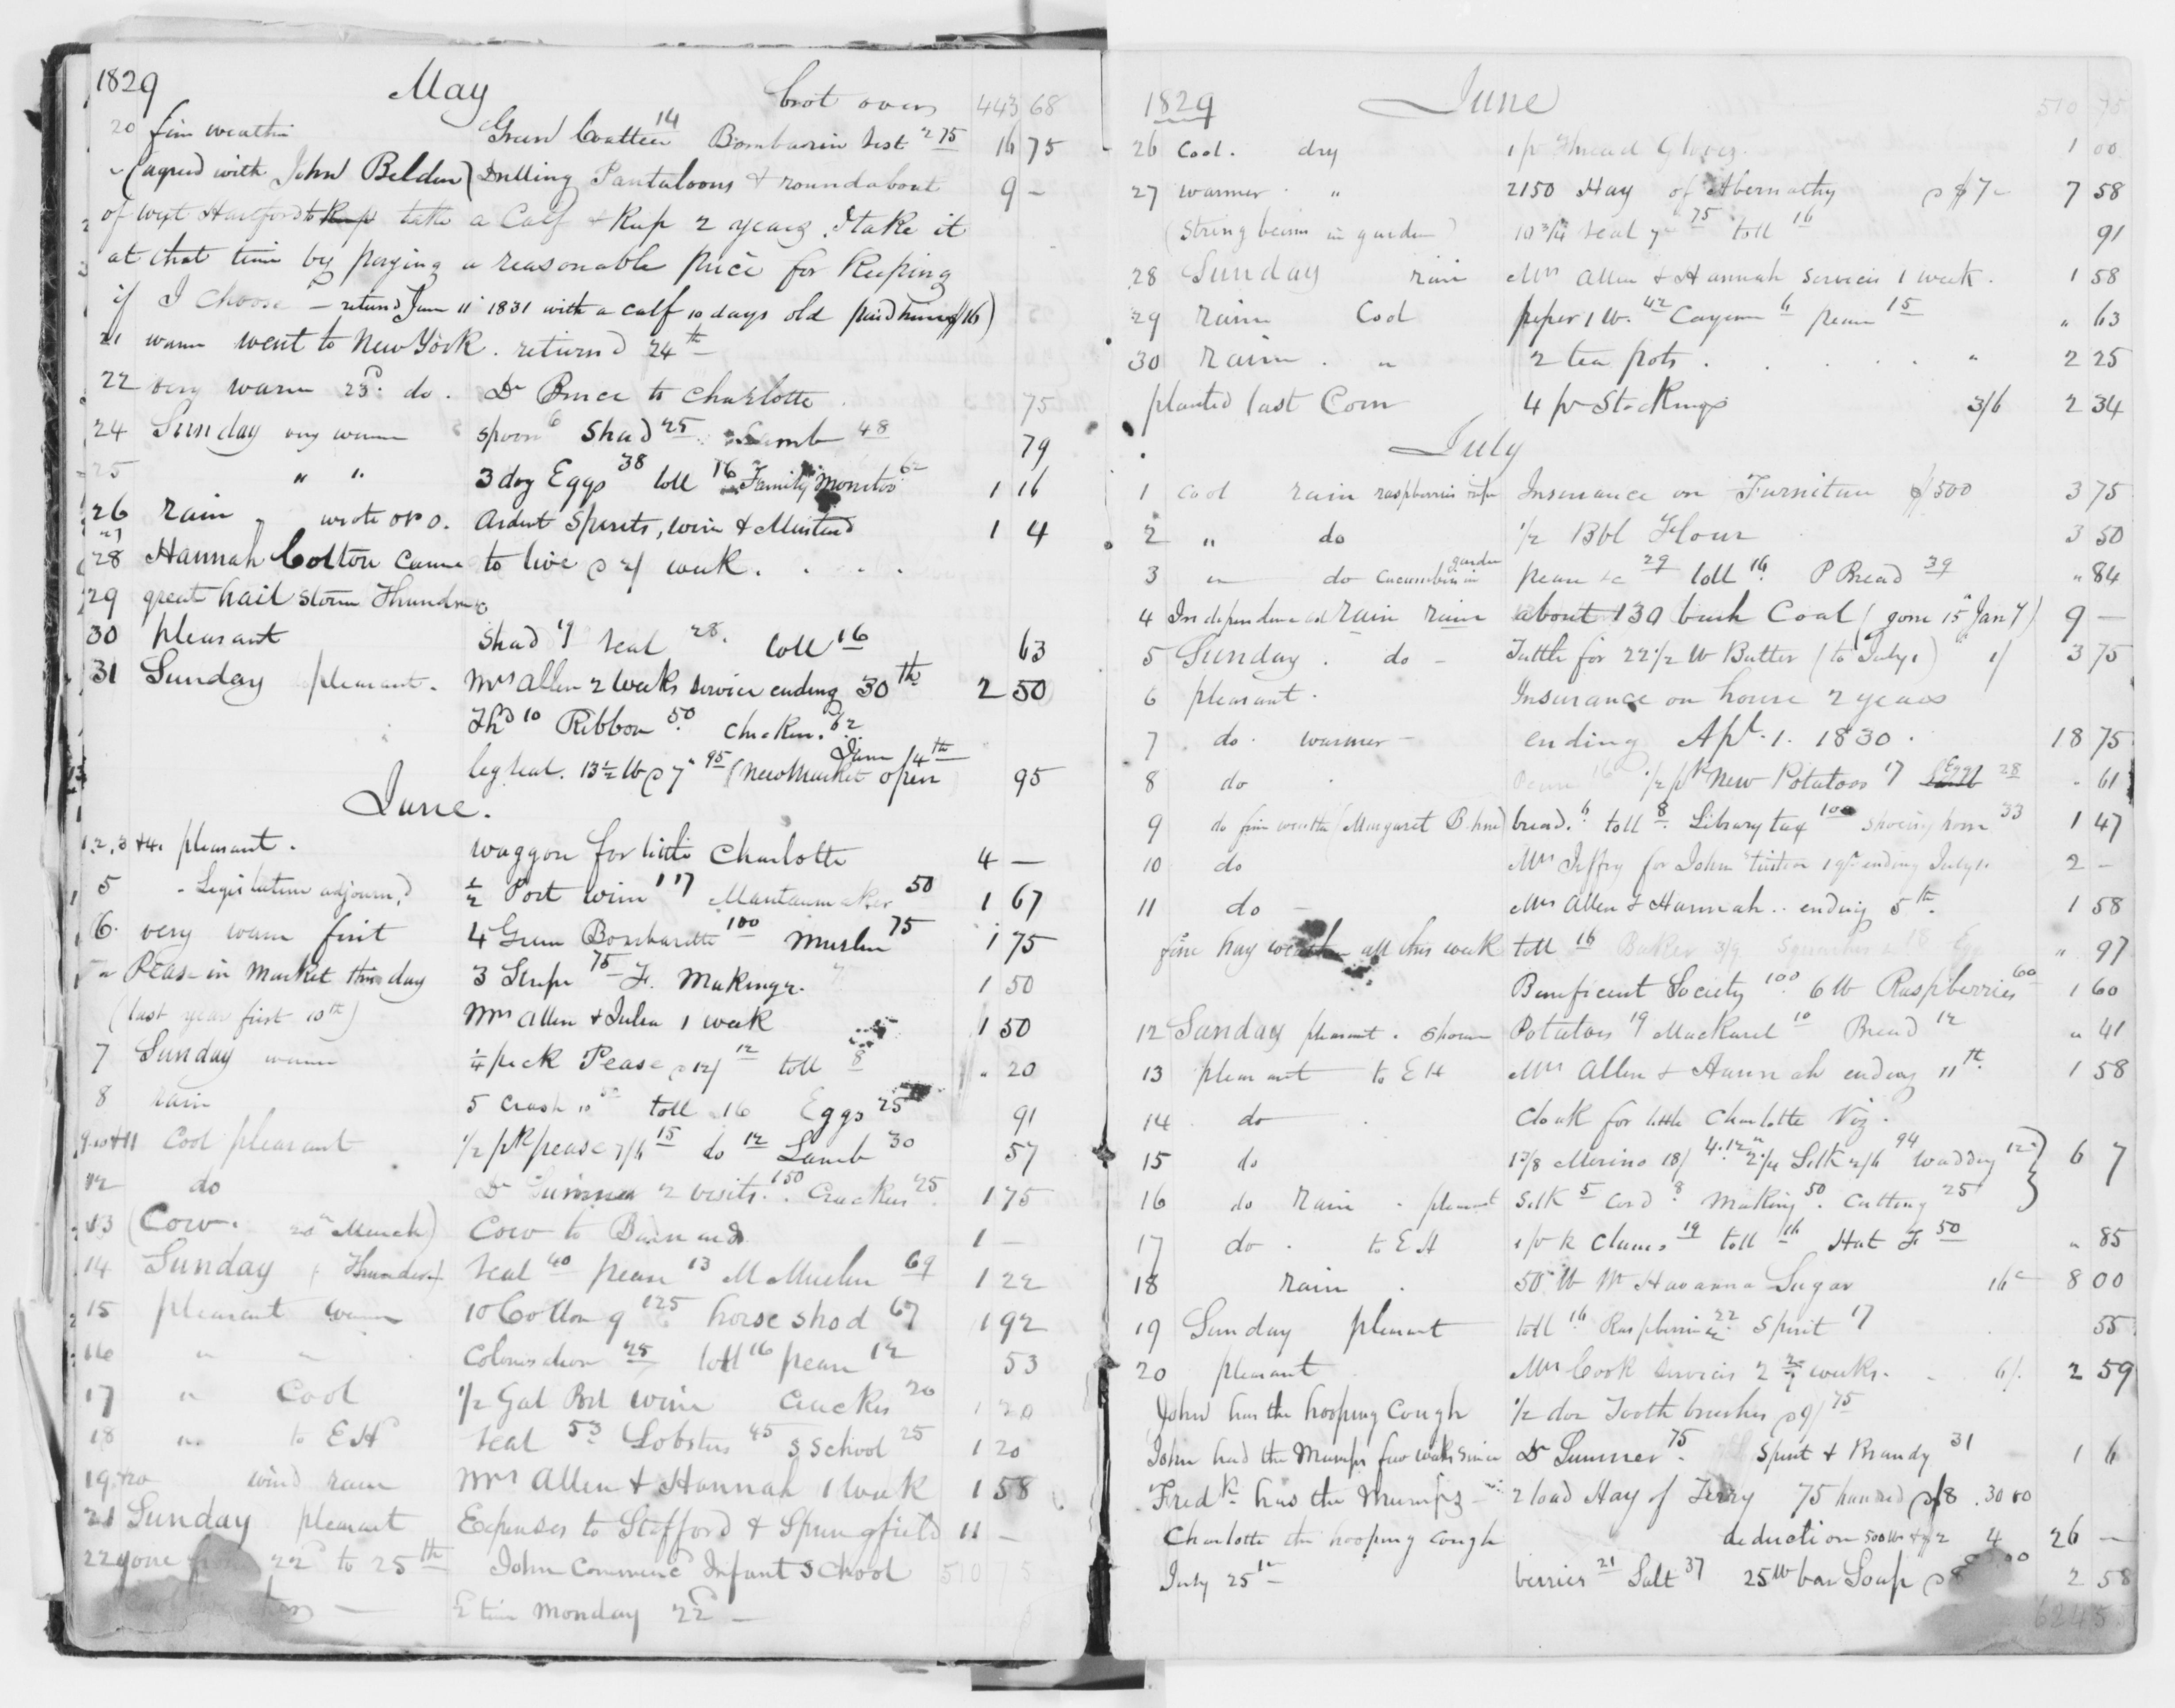 1829 May brot over 443 68
20 fine weather Green Coattee 14 Bombazin Vest 2 75 16 75
(agreed with John Belden) Drilling Pantaloons & roundabout 9 –
of West Hartford to keep take a Calf & Keep 2 years. I take it
at that time by paying a reasonable price for Keeping
if I choose – returnd June 11 1831 with a calf 10 days old paid him $16)
21 warm went to New York. returnd 24th
22 very warm 23d. do. Dr Brace to Charlotte 75
24 Sunday very warm spoon 6 Shad 25 Lamb 48 79
25 " " 3 doz Eggs 38 toll 16 Family Monitor 62 1 16
26 rain wrote Ardent Spirits, wine & Mustard 1 4
27
28 Hannah Colton came to live @ 4/ week. . . .
29 great hail storm Thunder &c
30 pleasant Shad 19 Veal 28. toll 16 63
31 Sunday pleasant. Mrs Allen 2 weeks service ending 30th 2 50
Thd 10 Ribbon 50 Chicken. 62
leg Veal. 13½ lb @ 7 95 (New Market open June 14th 95
June.
1,2,3 & 4. pleasant. waggon for little Charlotte 4 –
5 Legislature adjournd ½ Port wine 117 Mantuamaker 50 1 67
6. very warm first 4 Green Bombazette 100 Muslin 75 1 75
Peas in Market this day 3 Stripe 75 F. Making 1 50
(last year first 10th) Mrs Allen & Julia 1 week 1 50
7 Sunday warm ¼ peck Pease @ 12/ 12 toll 8 " 20
8 rain 5 Crash 10 50 toll 16 Eggs 25 91
9 10 & 11 Cool pleasant ½ pk pease 2/6 15 do 12 Lamb 30 57
12 do Dr Sumner 2 visits. 150. Crackers 25 1 75
13 (Cow. 20th March) Cow to Barnards 1 –
14 Sunday Thunder Veal 40 pease 13 M Muslin 69 1 22
15 pleasant warm 10 Cotton 9 125 horse shod 67 1 92
16 " " toll 16 pease 12 53
17 " Cool ½ Gal Port wine Crackers 20 1 20
18 " to E H Veal 53 Lobsters 45 S School 25 1 20
19 & 20 wind rain Mrs Allen & Hannah 1 week 1 58
21 Sunday pleasant Expenses to Stafford & Springfield 11 –
22 gone from 22d to 25th John Commencd Infant School 510 75
Monday 22d –
1829 June 510 75
26 Cool. dry 1 pr Thread Gloves. 1 00
27 warmer " 2150 Hay of Abernathy @ $7 – 7 58
(String beans in garden) 10¾ Veal 7 75 toll 16 91
28 Sunday rain Mrs Allen & Hannah services 1 week. 1 58
29 rain Cool peper 1 lb. 42 Cayenne 6 pease 15 " 63
30 rain. " 2 tea pots . . . . " 2 25
planted last Corn 4 pr Stockings 3/6 2 34
July
1 cool rain raspberries ripe Insurance on Furniture $500 3 75
2 " do ½ Bbl Flour 3 50
3 " do Cucumbers in garden pease &c 29 toll 16. P Bread 39 " 84
4 Independence rain rain about 130 bush Coal (gone 15th Jany) 9 –
5 Sunday. do – Tuttle for 22½ lb Butter (to July 1) 1/ 3 75
6 pleasant. Insurance on house 2 years
7 do. warmer – ending Apl. 1. 1830. 18 75
8 do 16 ½ pk New Potatoes 17 Eggs 28 " 61
9 do fine weather (Margaret B. hired bread. 6 toll 8 Library tax 100 shoeing horse 33 1 47
10 do Mrs Jeffry for John Tuition 1 qr ending July 1. 2 –
11 do – Mrs Allen & Hannah.. ending 5th. 1 58
fine hay weather all this week toll 16 Baker 3/9 Squashes 18 Egg " 97
Beneficent Society 100 6 lb Raspberries 60 1 60
12 Sunday pleasant. shower Potatoes 19 Mackarel 10 Bread 12 " 41
13 pleasant to E H Mrs Allen & Hannah ending 11th. 1 58
14 do Cloak for little Charlotte Viz.
15 do 1⅜ Merino 18/ 4.12 2¼ Silk 2/6 94 Wadding 12 } 6 7
16 do rain. pleasant Silk 5 Cord 8 Making 50. Cutting 25 }
17 do. to E H 1 pk Clams 19 toll 16 Hat F 50 " 85
18 rain. 50 lb W Havanna Sugar 16c 8 00
19 Sunday pleasant toll 16 Raspberries 22 Spirit 17 55
20 pleasant Mrs Cook services 2 weeks. 6/. 2 59
John has the hooping Cough ½ doz Tooth brushes @ 9/ 75
John had the Mumps few weeks since Dr Sumner 75. Spirit & Brandy 31 1 6
Fredk has the Mumps – 2 load Hay of Terry 75 hundred @ $8. 30 00
Charlotte the hooping cough deduction 500 lbs & $2 4 26 –
July 25th berries 21 Salt 37 25 lb bar Soap @ 8 2 58